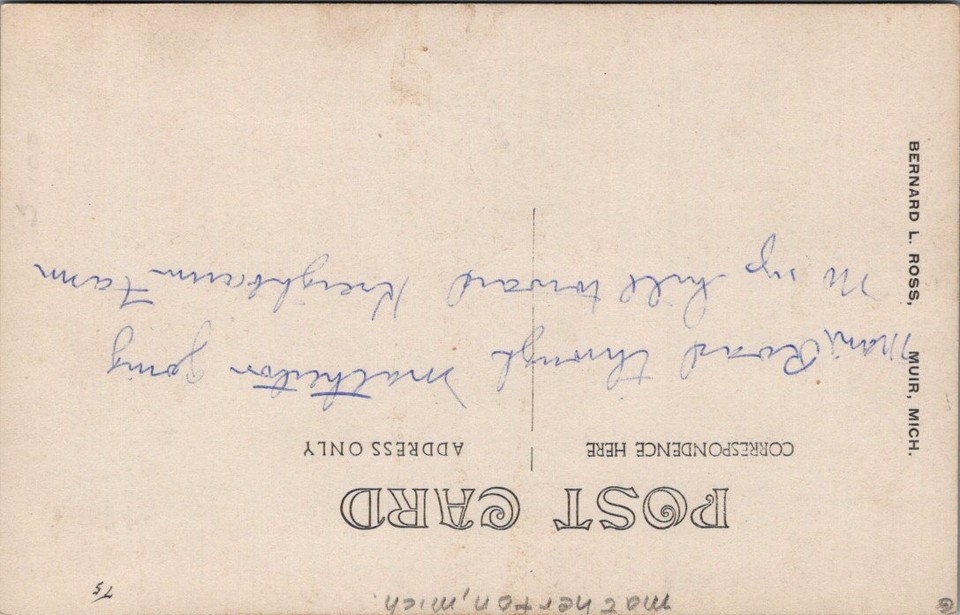 matherton, mich.
POST CARD
CORRESPONDENCE HERE
ADDRESS ONLY
Main Road through Matherton going
up hill toward Kreighbaum Farm
BERNARD L. ROSS, MUIR, MICH.
75